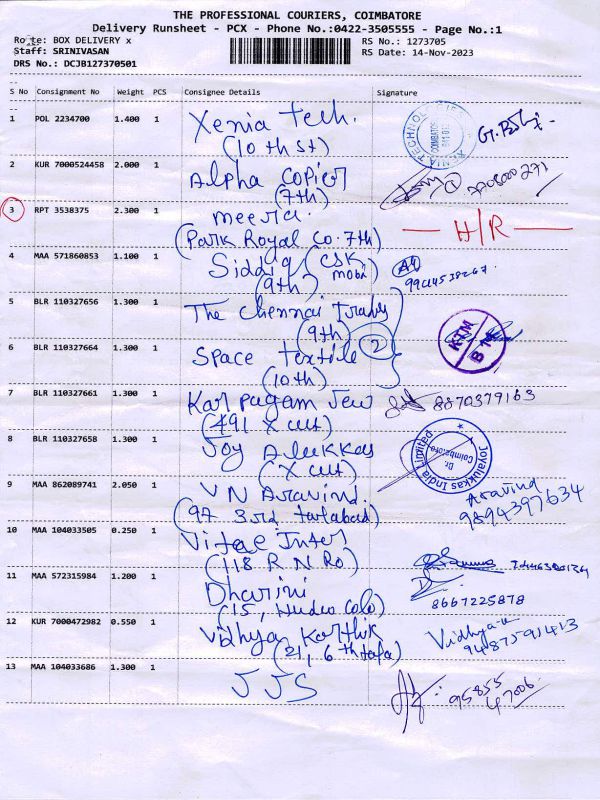 THE PROFESSIONAL COURIERS, COIMBATORE
Delivery Runsheet - PCX - Phone No.:0422-3505555 - Page No.:1
Route: BOX DELIVERY x RS No.: 1273705
Staff: SRINIVASAN RS Date: 14-Nov-2023
DRS No.: DCJB127370501
S No Consignment No Weight PCS Consignee Details Signature
1 POL 2234700 1.400 1 Xenia Tech.
(10th st)
2 KUR 7000524458 2.000 1 Alpha Copier
(7th)
3 RPT 3538375 2.300 1 meera. H/R
(Park Royal Co. 7th)
4 MAA 571860853 1.100 1 Siddiq (CSK mobi)
(9th)
5 BLR 110327656 1.300 1 The Chennai Trades
(9th) 2
6 BLR 110327664 1.300 1 Space Textile KTM
(10th)
7 BLR 110327661 1.300 1 Karpagam Jew 8870379163
(491 X cut)
8 BLR 110327658 1.300 1 Joy Alukkas Joyalukkas India Limited Coimbatore
(X cut)
9 MAA 862089741 2.050 1 V N Aravind. Aravind
(97 3rd tatabad) 9894397634
10 MAA 104033505 0.250 1 Vitae Inter
(118 R N Ro)
11 MAA 572315984 1.200 1 Dharini
(15, Hudco Colo) 8667225878
12 KUR 7000472982 0.550 1 Vidhya Karthik Vidhya-k
(21, 6th tata) 9487591413
13 MAA 104033686 1.300 1 JJS 95855
47006